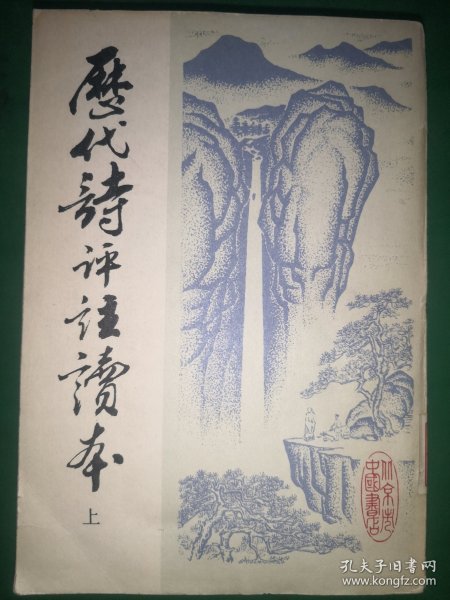 歷代詩评註讀本
上
北京市
中國書店
孔夫子旧书网
www.kongfz.com